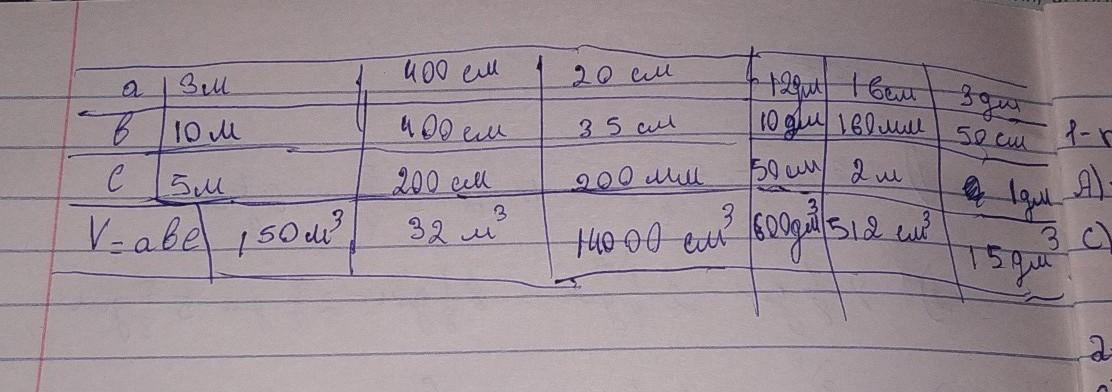 a 3м 400 см 20 см 12дм 16см 3 дм
в 10 м 400 см 35 см 10 дм 160мм 50 см
с 5м 200 см 200 мм 50 см 2 м 1 дм
V=авс 150м³ 32 м³ 14000 см³ 600дм³ 512 см³ 15 дм³
1-
А)
С)
2